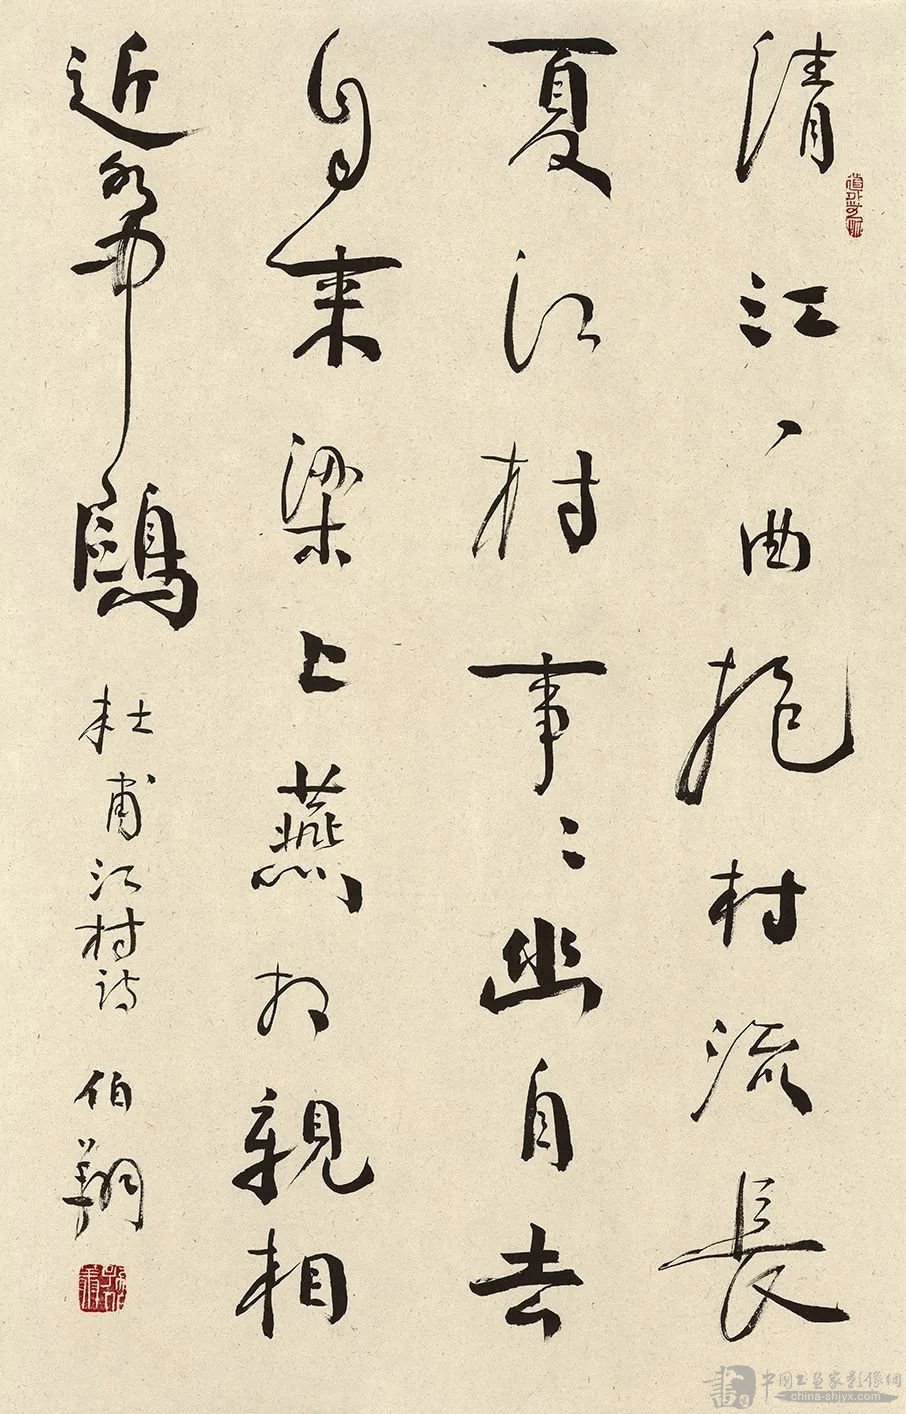 清江一曲抱村流長
夏江村事〻幽自去
自來梁上燕相親相
近水中鷗
杜甫江村詩 伯翔
china-shjyx.com